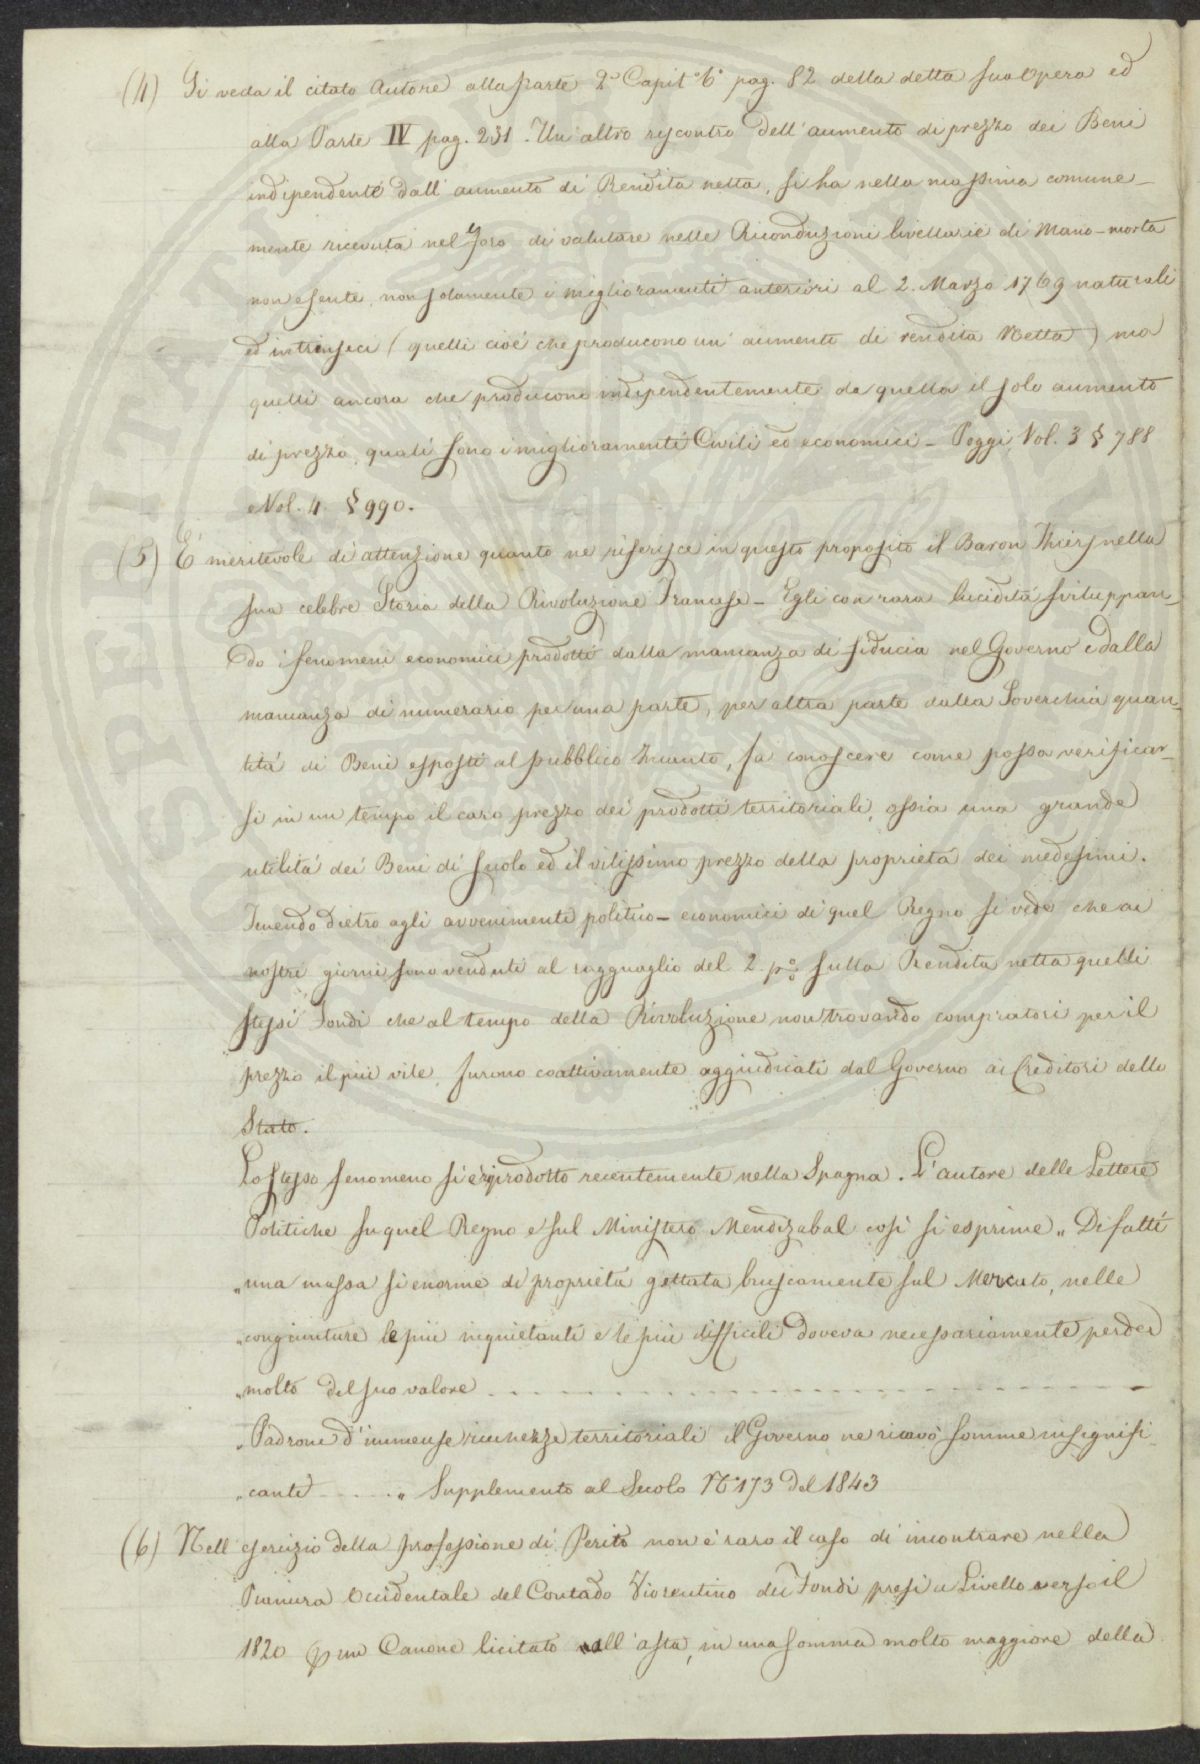 (4) Si veda il citato Autore alla Parte 2ª Capit° 6° pag. 82 della detta sua Opera ed
alla Parte IV pag. 231. Un'altro riscontro dell'aumento di prezzo dei Beni
indipendente dall'aumento di Rendita netta, si ha nella massima comune-
mente ricevuta nel Foro di valutare nelle Riconduzioni livellarie di Mano-morta
non esente, non solamente i miglioramenti anteriori al 2. Marzo 1769 naturali
ed intrinseci (quelli cioè che producono un'aumento di rendita Netta) ma
quelli ancora che producono indipendentemente da quella il solo aumento
di prezzo, quali sono i miglioramenti Civili ed economici - Poggi, Vol. 3 § 788
e Vol. 4. § 990.
(5) E' meritevole di attenzione quanto ne riferisce in questo proposito il Baron Thiers nella
sua celebre Storia della Rivoluzione Francese - Egli con rara lucidità sviluppan-
do i fenomeni economici prodotti dalla mancanza di fiducia nel Governo e dalla
mancanza di numerario per una parte, per altra parte dalla Soverchia quan-
tità di Beni esposti al pubblico Incanto, fa conoscere come possa verificar-
si in un tempo il caro prezzo dei prodotti territoriali, ossia una grande
utilità dei Beni di suolo ed il vilissimo prezzo della proprietà dei medesimi.
Tenendo dietro agli avvenimenti politico-economici di quel Regno si vede che ai
nostri giorni sono venduti al ragguaglio del 2. p% sulla Rendita netta quelli
stessi Fondi che al tempo della Rivoluzione non trovando compratori per il
prezzo il più vile, furono coattivamente aggiudicati dal Governo ai Creditori dello
Stato.
Lo stesso fenomeno si è riprodotto recentemente nella Spagna. L'autore delle Lettere
Politiche su quel Regno e sul Ministero Mendizabal così si esprime „ Difatti
„ una massa sì enorme di proprietà gettata bruscamente sul Mercato, nelle
„ congiunture le più inquietanti e le più difficili doveva necessariamente perder
„ molto del suo valore - - - - - - - - - - - - - - - - - - - -
„ Padrone d'immense ricchezze territoriali il Governo ne ricavò somme insignifi-
„ canti ...... „ Supplemento al Secolo N° 173 del 1843
(6) Nell'esercizio della professione di Perito non è raro il caso di incontrare nella
Pianura Occidentale del Contado Fiorentino dei Fondi presi a Livello verso il
1820 per un Canone licitato all'asta, in una somma molto maggiore della